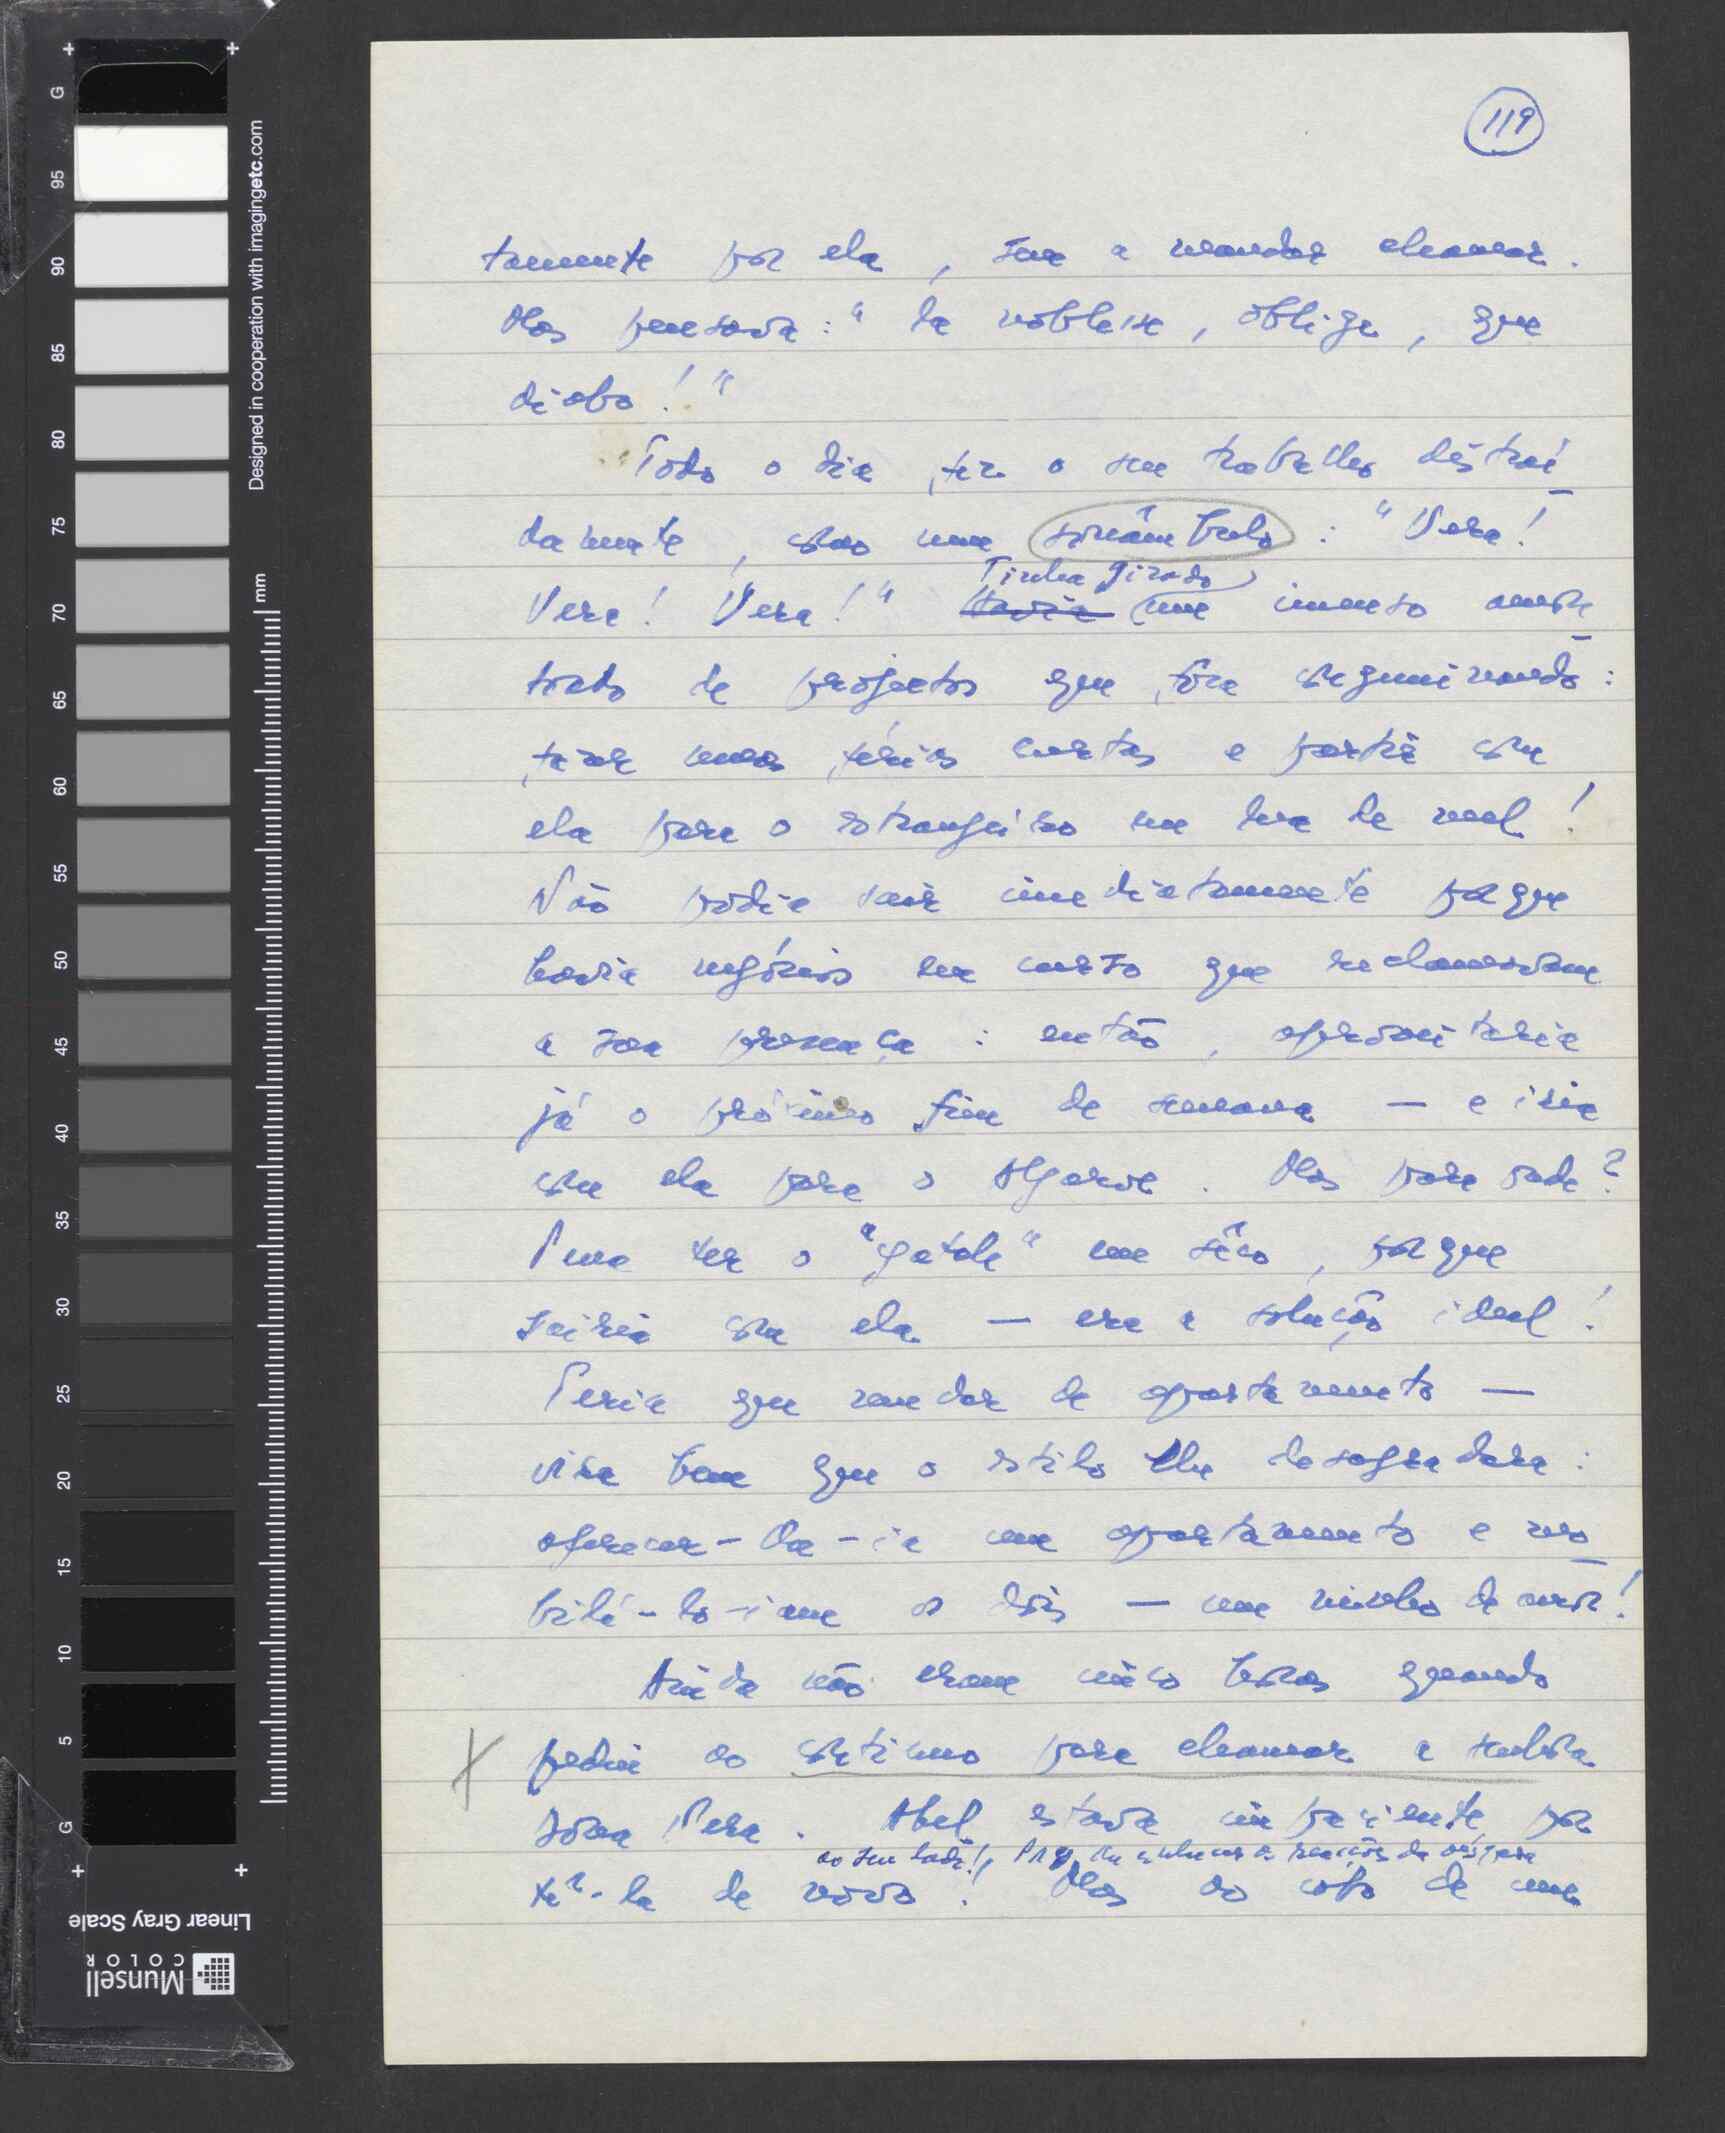 119
tamente por ela, sem a mandar chamar.
Mas pensava: "La noblesse, oblige, que
diabo!"
Todo o dia fez o seu trabalho distraí
damente, como um sonâmbulo: "Vera!
Tinha girado
Vera! Vera!" Havia um imenso
de projectos que fora
tirar umas férias curtas e partir com
ela para o estrangeiro em lua de mel!
Não podia sair imediatamente porque
havia negócios em curso que reclamavam
a sua presença: então, aproveitaria
já o próximo fim de semana — e iria
com ela para o Algarve. Mas para onde?
Pena ter o "yatch" em sêco, porque
sairia com ela — era a solução ideal!
Teria que mudar de apartamento —
vira bem que o estilo lhe desagradara:
oferecer-lhe-ia um apartamento e mo
bilá-lo-iam os dois — um ninho de amor!
Ainda não eram cinco horas quando
pediu ao contínuo para chamar a senhora
dona Vera. Abel estava impaciente por
ao seu lado!, as reacções da véspera
tê-la de novo! Mas ao cabo de um
Designed in cooperation with imagingetc.com
mm
G
95
90
85
80
75
70
65
60
55
50
45
40
35
30
25
20
15
10
5
G
Linear Gray Scale
Munsell
COLOR